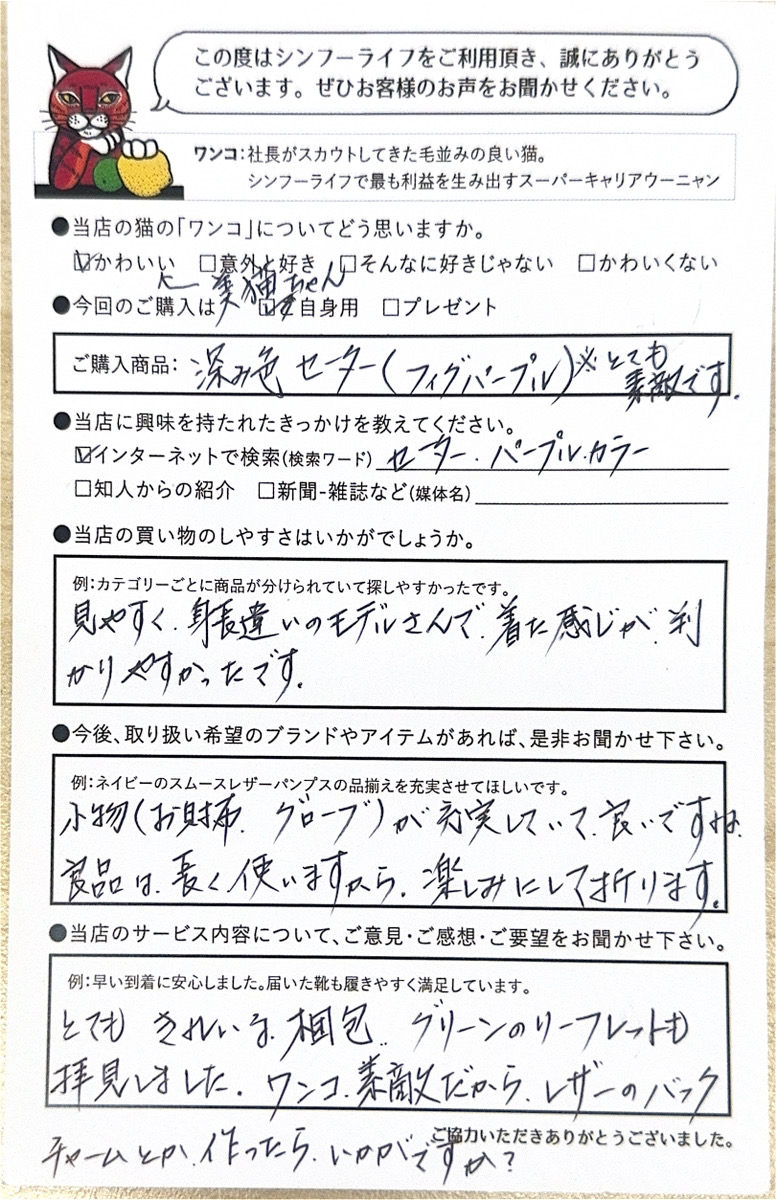 この度はシンフーライフをご利用頂き、誠にありがとう
ございます。ぜひお客様のお声をお聞かせください。
ワンコ：社長がスカウトしてきた毛並みの良い猫。
シンフーライフで最も利益を生み出すスーパーキャリアウーニャン
●当店の猫の「ワンコ」についてどう思いますか。
☑かわいい □意外と好き □そんなに好きじゃない □かわいくない
美猫ちゃん
●今回のご購入は ☑ご自身用 □プレゼント
ご購入商品： 深み色 セーター(フィグパープル)※とても
素敵です。
●当店に興味を持たれたきっかけを教えてください。
☑インターネットで検索(検索ワード) セーター.パープル.カラー
□知人からの紹介 □新聞-雑誌など(媒体名)
●当店の買い物のしやすさはいかがでしょうか。
例：カテゴリーごとに商品が分けられていて探しやすかったです。
見やすく、身長違いのモデルさんで、着た感じが、判
かりやすかったです。
●今後、取り扱い希望のブランドやアイテムがあれば、是非お聞かせ下さい。
例：ネイビーのスムースレザーパンプスの品揃えを充実させてほしいです。
小物(お財布、グローブ)が充実していて、良いですね。
良品は、長く使いますから、楽しみにして折ります。
●当店のサービス内容について、ご意見・ご感想・ご要望をお聞かせ下さい。
例：早い到着に安心しました。届いた靴も履きやすく満足しています。
とても きれいな、梱包、、グリーンのリーフレットも
拝見しました。ワンコ、素敵だから、レザーのバック
ご協力いただきありがとうございました。
チャームとか、作ったら、いかがですか？